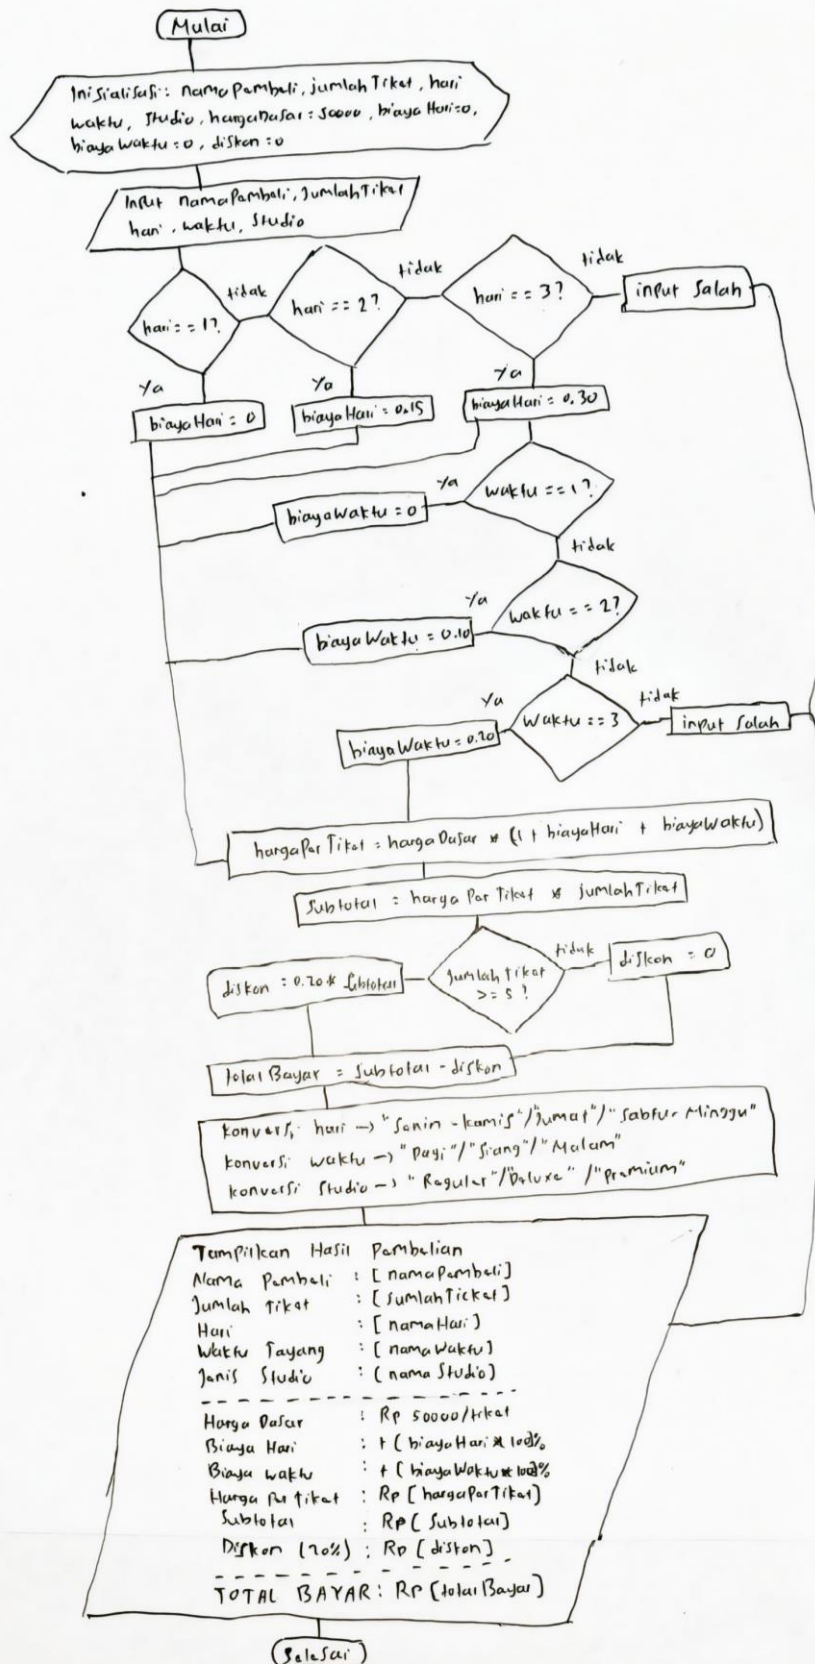 Mulai
Inisialisasi: namaPembeli, jumlahTiket, hari
waktu, studio, hargaDasar = 50000, biayaHari=0,
biayaWaktu=0, diskon=0
Input namaPembeli, JumlahTiket
hari, waktu, Studio
hari == 1?
tidak
hari == 2?
tidak
hari == 3?
tidak
input Salah
Ya
Ya
Ya
biayaHari = 0
biayaHari = 0.15
biayaHari = 0.30
waktu == 1?
Ya
biayaWaktu = 0
tidak
waktu == 2?
Ya
biayaWaktu = 0.10
tidak
Waktu == 3
Ya
tidak
biayaWaktu = 0.20
input Salah
hargaPerTiket = hargaDasar * (1 + biayaHari + biayaWaktu)
Subtotal = hargaPerTiket * jumlahTiket
Jumlah tiket
>= 5?
tidak
diskon = 0.20 * Subtotal
diskon = 0
totalBayar = Subtotal - diskon
konversi hari -> "Senin - kamis"/"Jumat"/"Sabtur Minggu"
konversi waktu -> "Pagi"/"Siang"/"Malam"
konversi Studio -> "Regular"/"Deluxe" /"Premium"
Tampilkan Hasil Pembelian
Nama Pembeli : [namaPembeli]
Jumlah Tiket : [JumlahTicket]
Hari : [namaHari]
Waktu Tayang : [namaWaktu]
Jenis Studio : (nama Studio)
Harga Dasar : Rp 50000/tiket
Biaya Hari : + (biayaHari * 100)%
Biaya waktu : + (biayaWaktu * 100)%
Harga Per Tiket : Rp [hargaPerTiket]
Subtotal : Rp (Subtotal]
Diskon (20%) : Rp [diskon]
TOTAL BAYAR : RP [totalBayar]
Selesai